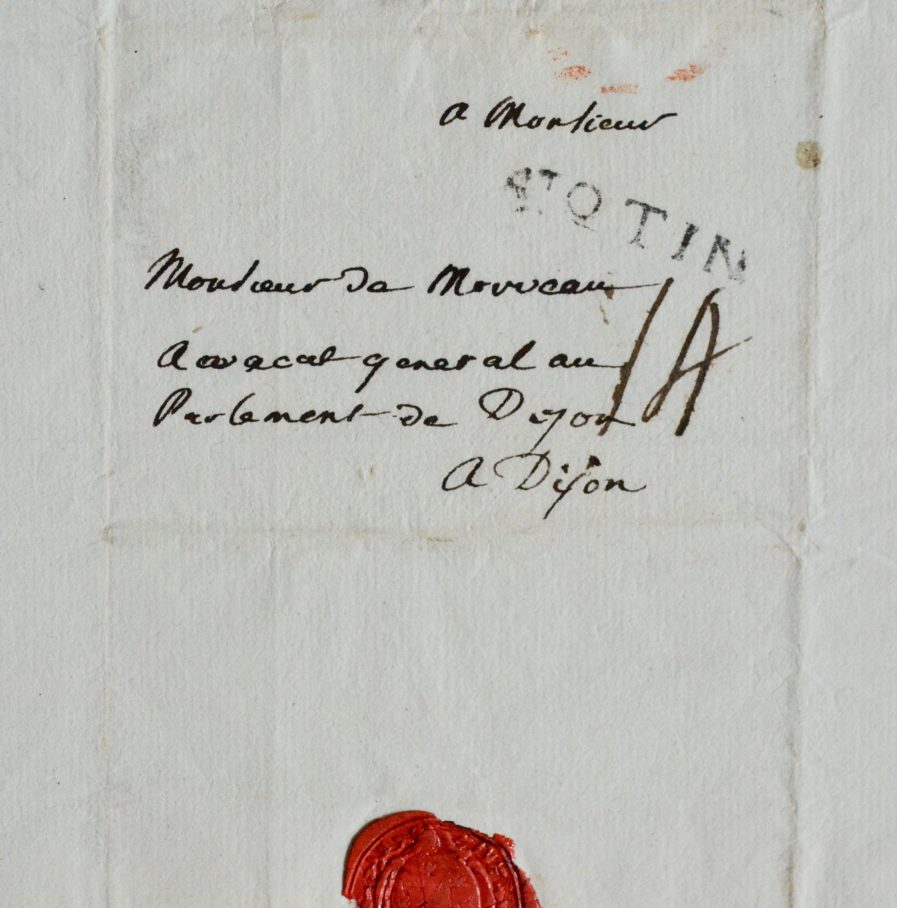 a Monsieur
St QTIN
Monsieur de Morveau
14
Avocat general au
Parlement de Dijon
A Dijon